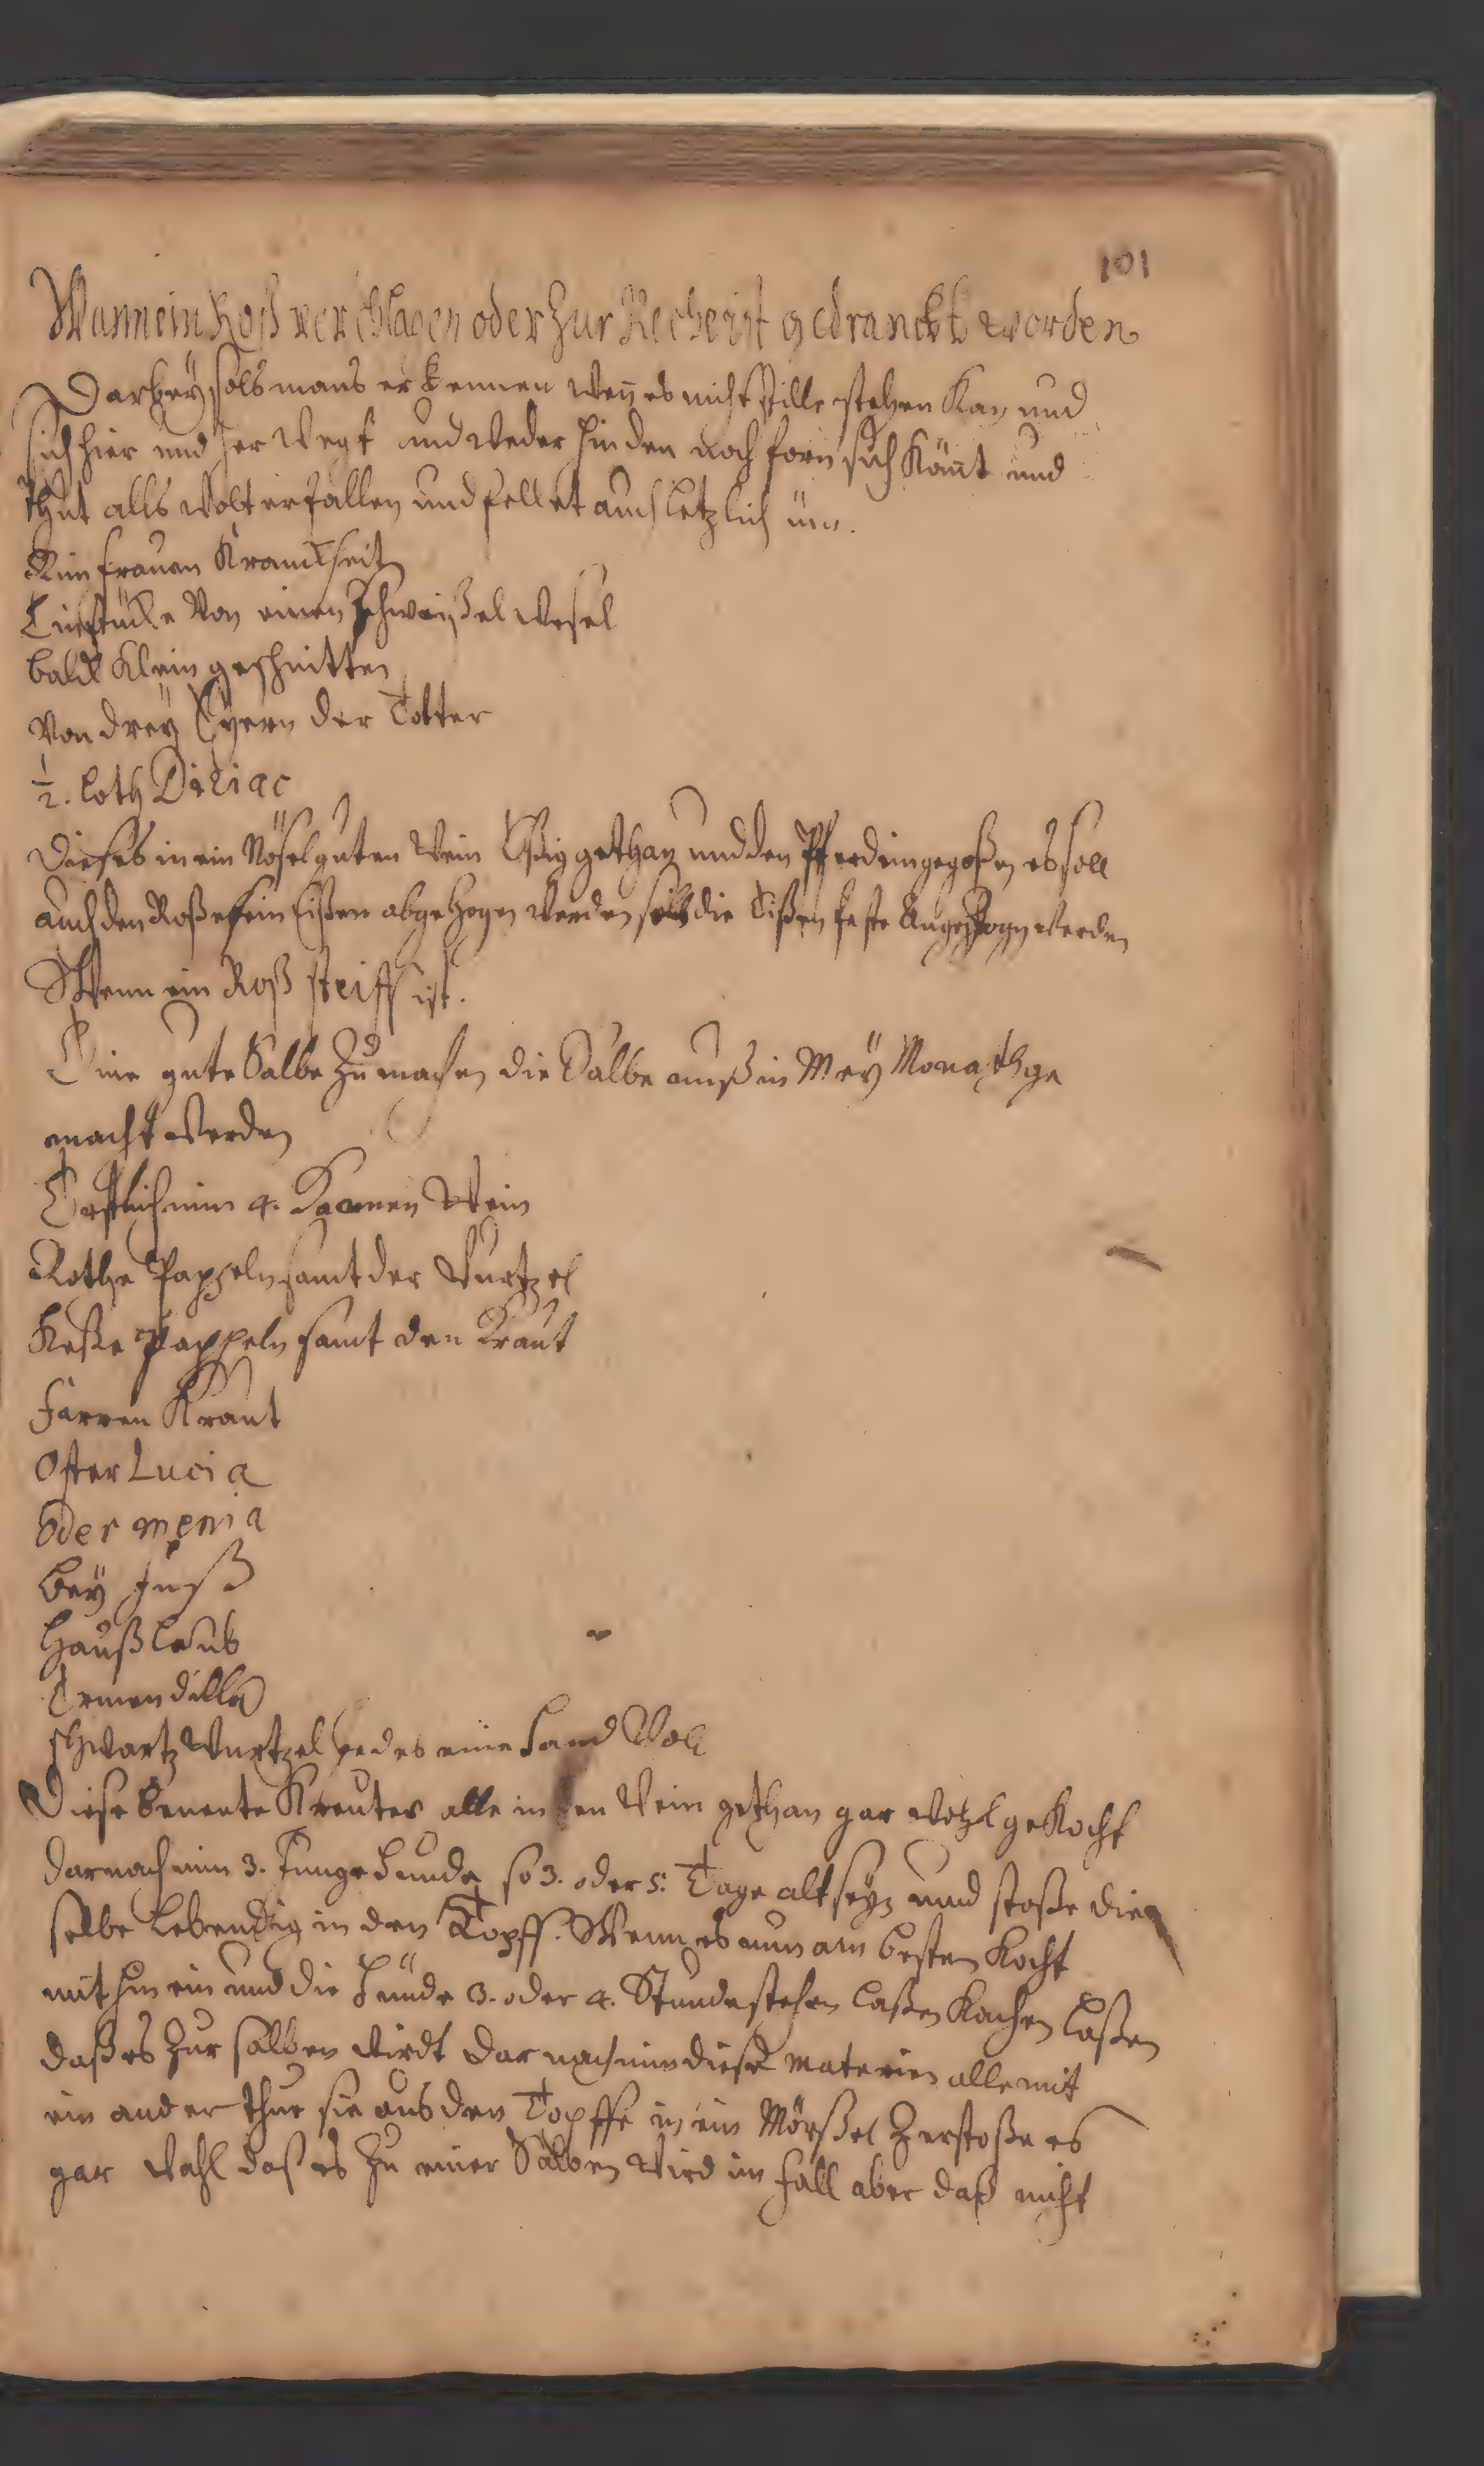 101
Wann ein Roß verschlagen oder zur Reche ist gedranckt worden
Darbey sols mans erkennen wen es nicht stille stehen kan und
sich hier und her wegt und weder hinden noch forn sich könt und
thut alls wolt er fallen und fellet auch letzlich üm.
Nim frauen Kranckheit
Ein stücke von einen
bald klein geschnitten
Von drey Eyern der Totter
½. loth Diriac
Dieses in ein Nösel guten Wein Eßig gethan und den Pferd eingegoßen es soll
auch den Roße kein Eißen abgezogen werden soll die Eißen feste angezogen werden
Wenn ein Roß steiff ist.
Eine gute Salbe zu machen die Salbe muß in Mey Monath ge
macht werden
Erstlich nim 4. Kannen Wein
Rothe Pappeln samt der Wurtzel
Keße Pappeln samt den Kraut
Farren Kraut
Oster Lucia
Oder menia
bey fuß
Haußlaub
Tormendilla
schwartz Wurtzel jedes eine Hand Voll
Diese benente Kreuter alle in den Wein gethan gar wohl gekocht
darnach nim 3. Junge Hunde so 3. oder 5. Tage alt seyn und stoße die
selbe lebendig in den Topff. Wenn es nun am besten kocht
mit hin ein und die Hunde 3. oder 4. Stunde stehen laßen kochen laßen
daß es zur salben wirdt dar nach nim diese materien alle mit
ein ander thue sie aus den Topffe in ein Mörßel Zerstoße es
gar wohl daß es zu einer Salben wird im fall aber daß nicht